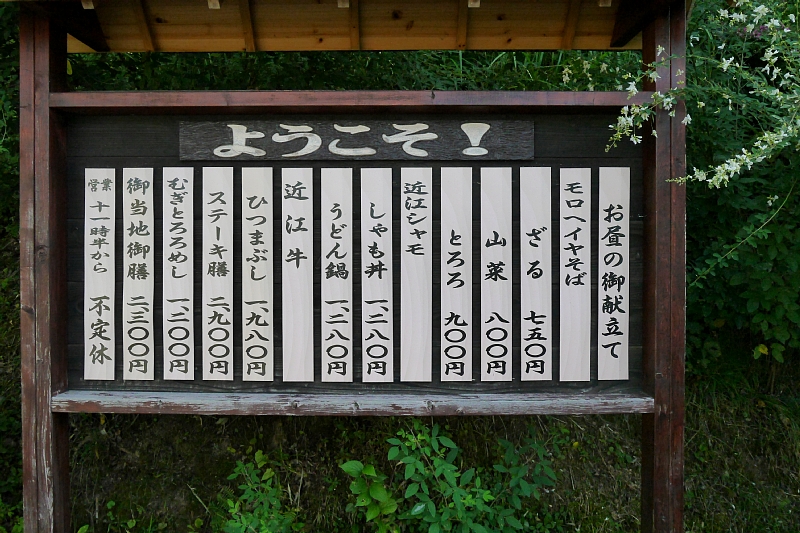 ようこそ！
お昼の御献立て
モロヘイヤそば
ざる 七五〇円
山菜 八〇〇円
とろろ 九〇〇円
近江シャモ
しゃも丼 一、二八〇円
うどん鍋 一、二八〇円
近江牛
ひつまぶし 一、九八〇円
ステーキ膳 二、九〇〇円
むぎとろろめし 一、二〇〇円
御当地御膳 二、三〇〇円
営業 十一時半から 不定休